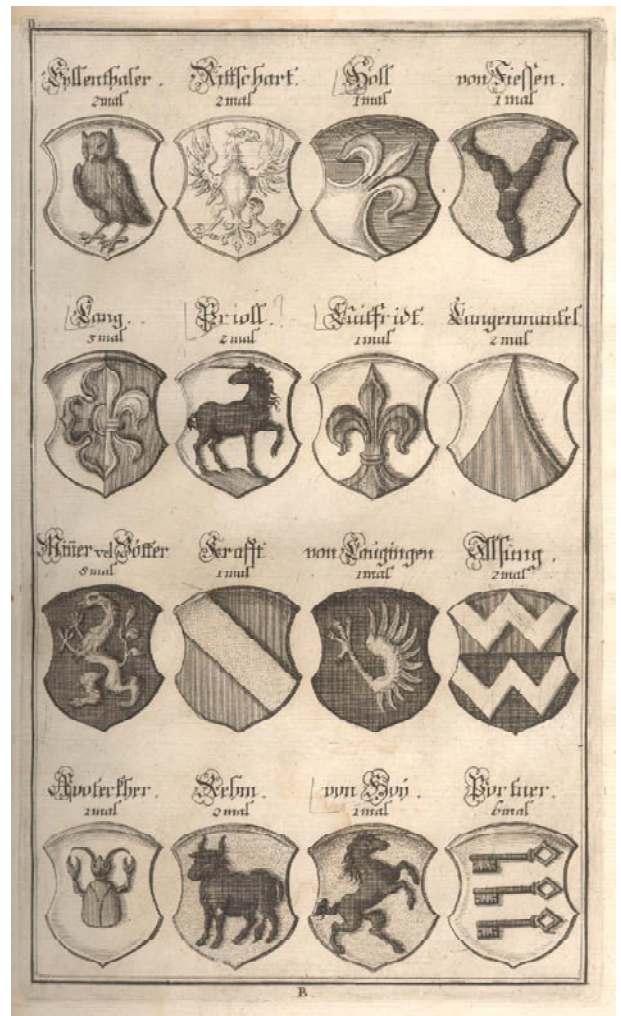 Rittschart.
2mal
Holl
1mal
von Fiessen.
1mal
2mal
Lang.
3mal
Prioll.
Luitfridt.
1mal
Langenmantel
2mal
Miller vel Zotter
8mal
Krafft.
1mal
von Laugingen
1mal
Ilsung.
2mal
Apoteckher.
1mal
Rehm.
2mal
von Hoÿ.
1mal
Portner.
6mal
B